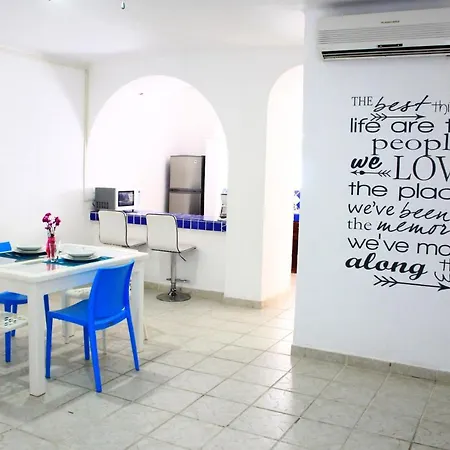 THE best thi
life are t
people
we LOV
the plac
we've been
the memor
we've ma
along th